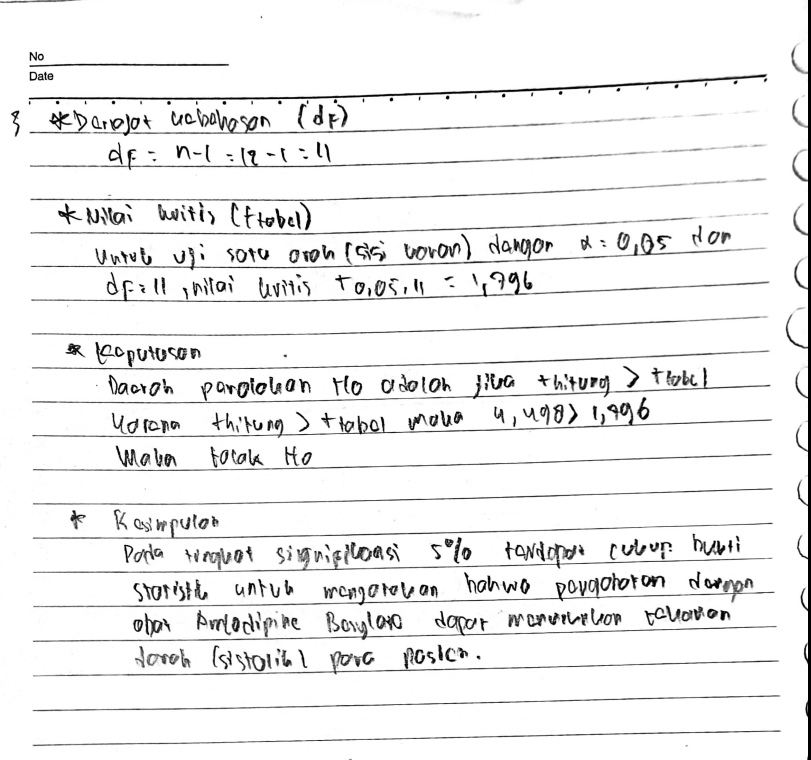 No
Date
* Derajat kebebasan (df)
df = n-1 = 12 - 1 = 11
* Nilai kritis (ttabel)
Untuk uji satu arah (sisi kanan) dengan α = 0,05 dan
df = 11, nilai kritis t0,05,11 = 1,796
* Keputusan
Daerah penolakan Ho adalah jika thitung > ttabel
Karena thitung > ttabel maka 4,498 > 1,796
Maka tolak Ho
* Kesimpulan
Pada tingkat signifikansi 5% terdapat cukup bukti
statistik untuk mengatakan bahwa pengobatan dengan
obat Amlodipine Besylate dapat menurunkan tekanan
darah (sistolik) para pasien.